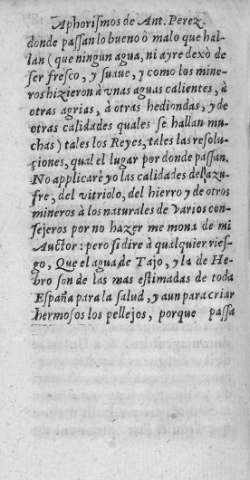 Aphorismos de Ant. Perez.
donde passan lo bueno ò malo que hal-
lan (que ningun agua, ni ayre dexò de
ser fresco, y suaue, y como los mine-
ros hizieron à vnas aguas calientes, à
otras agrias, à otras hediondas, y de
otras calidades quales se hallan mu-
chas) tales los Reyes, tales las resolu-
çiones, qual el lugar por donde passan.
No applicarè yo las calidades del azu-
fre, del vitriolo, del hierro y de otros
mineros à los naturales de varios con-
sejeros por no hazer me mona de mi
Auctor: pero si dire à qualquier ries-
go, Que el agua de Tajo, y la de He-
bro son de las mas estimadas de toda
España para la salud, y aun para criar
hermosos los pellejos, porque passa